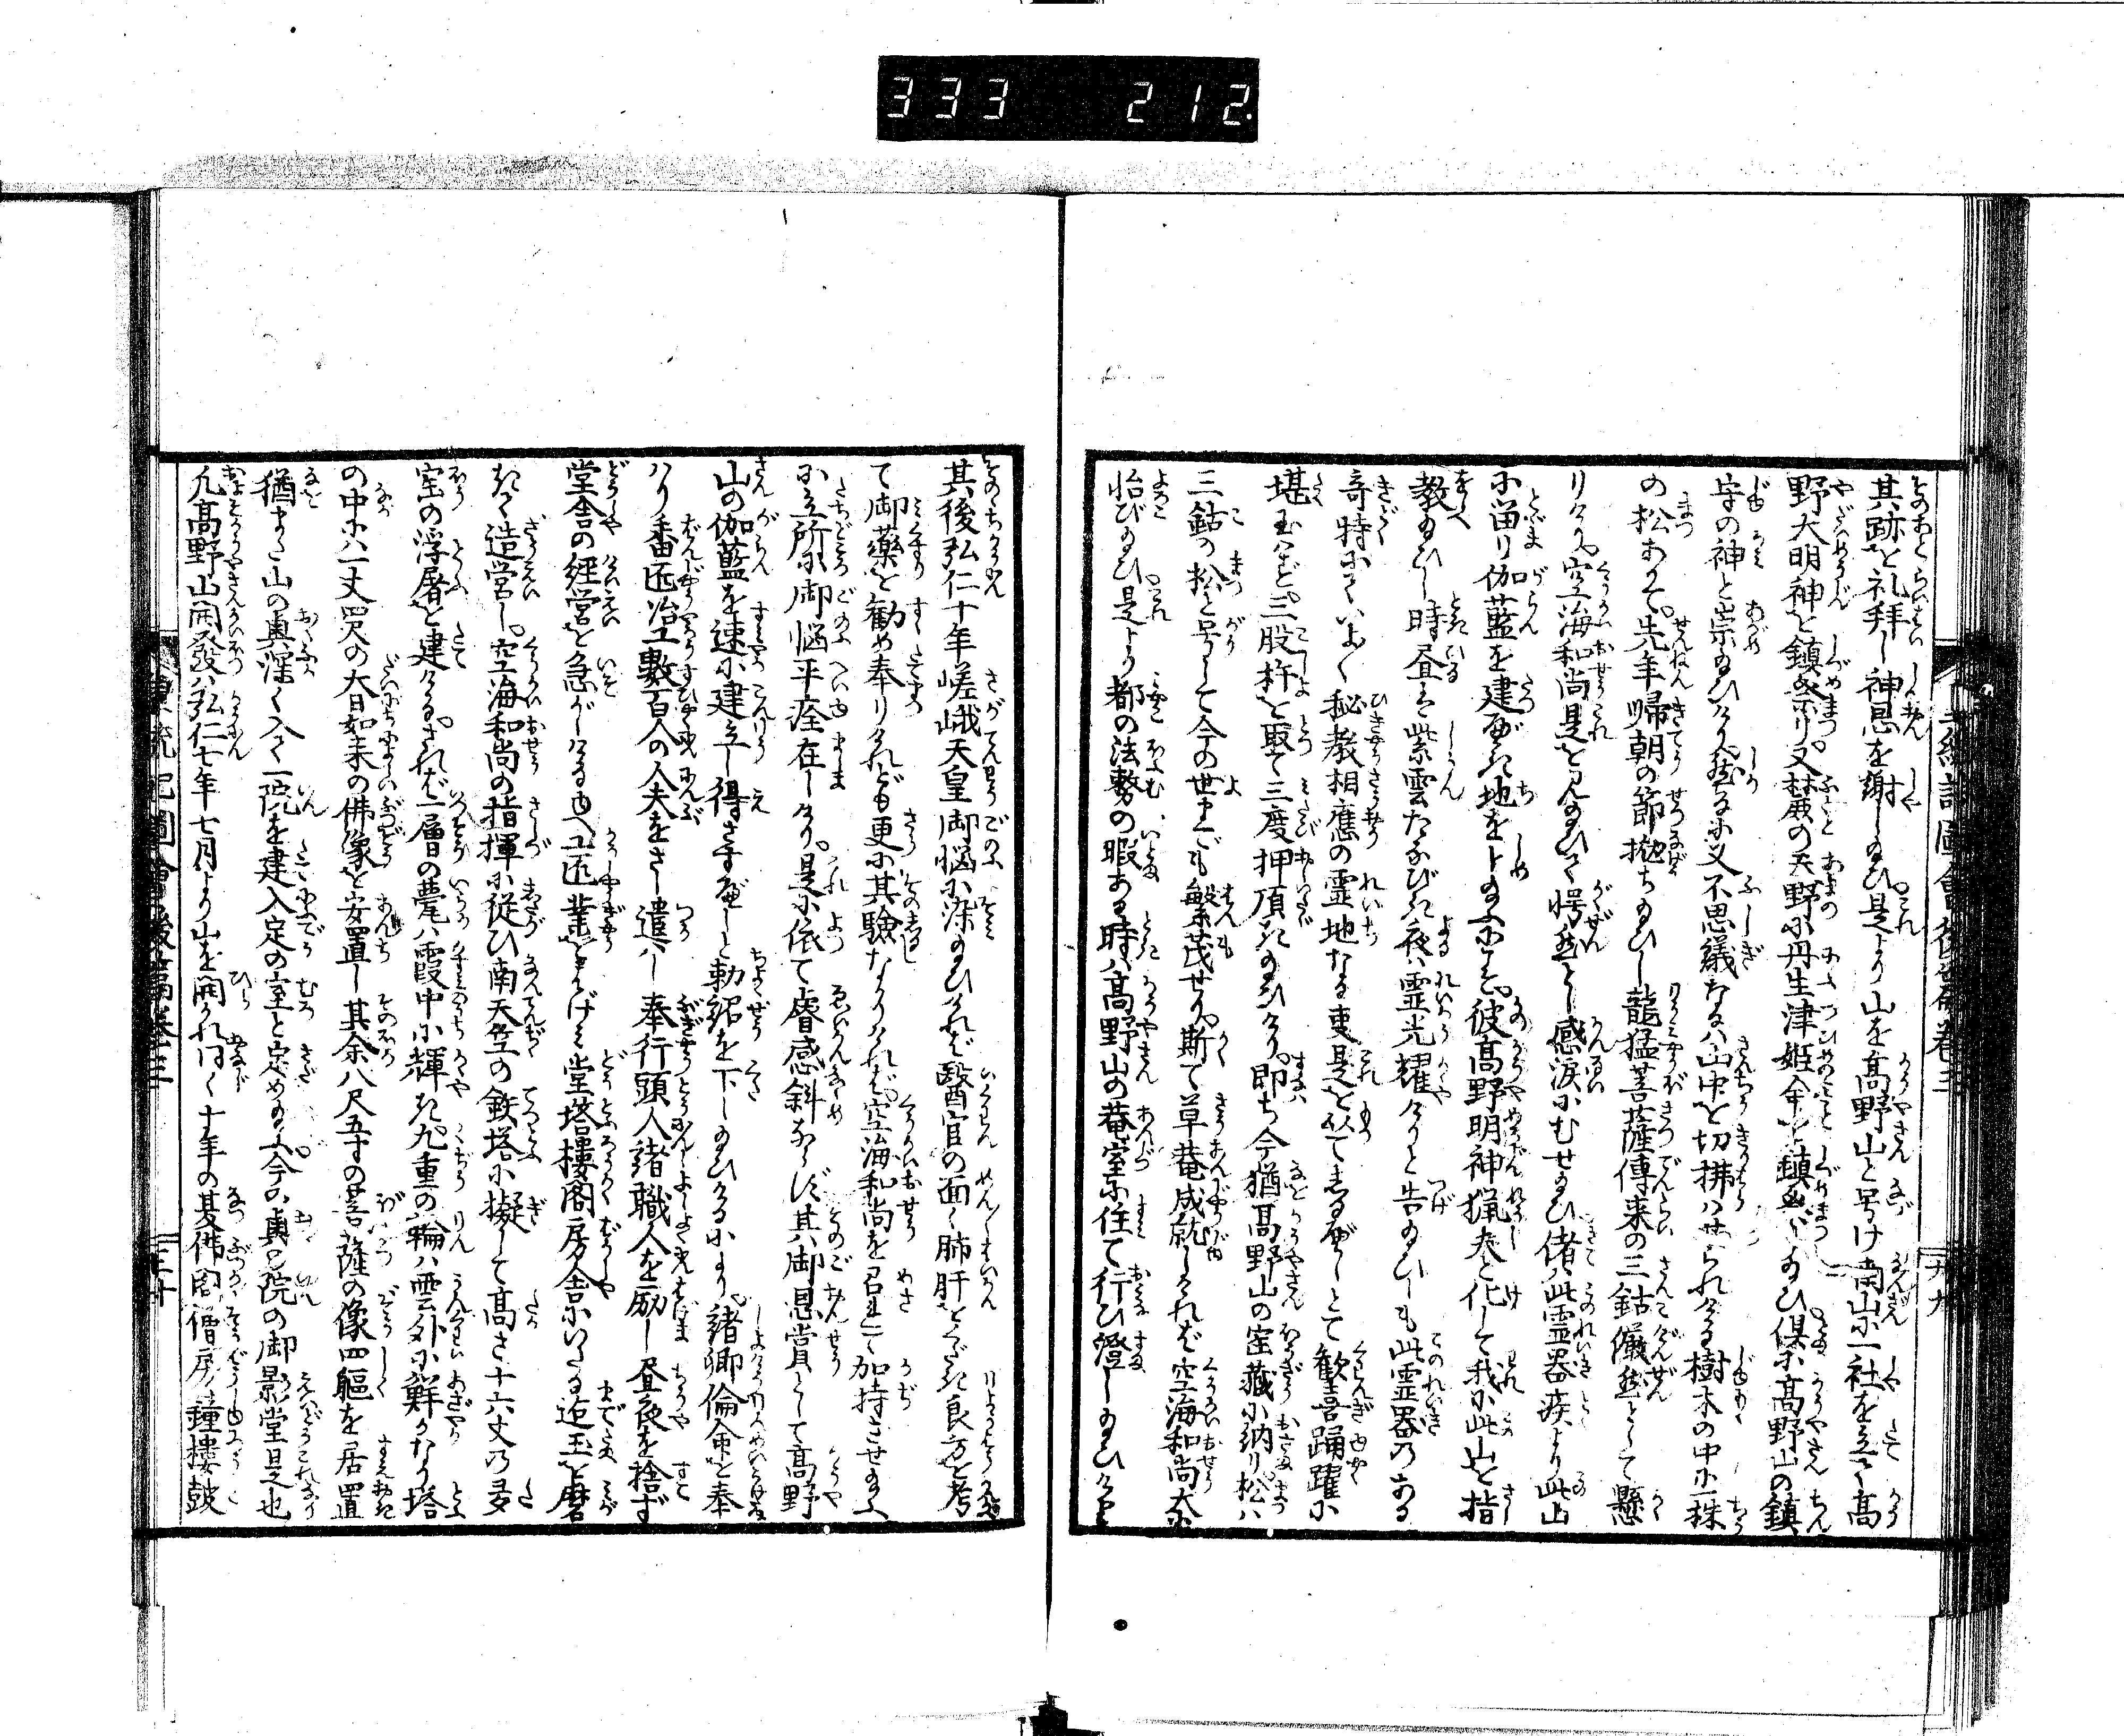 333 212
其跡を礼拜し神恩を謝し給ひ是より山を高野山と号け南山に一社を立て高
野大明神を鎮祭り又麓の天野に丹生津姫命を鎮祭り給ひ倶に高野山の鎮
守の神と崇給ひけり然るに又不思議なるハ山中を切拂ハせられける樹木の中に一株
の松ありて先年歸朝の節抛ち給ひし龍猛菩薩傳来の三鈷儼然として懸
りけり空海和尚是を見給ひて愕然とし感涙にむせび給ひ偖ハ此霊器疾より此山
に留り伽藍を建べき地をトめ給ふにぞ彼高野明神猟夫と化して我に此山を指
教給ひし時昼ハ紫雲たなびき夜ハ霊光耀けりと告給ひしも此霊器のある
奇特にていよ〱秘教相應の霊地なる事是を以てしるべしとて歓喜踊躍に
堪玉ハず三股杵を取て三度押頂き給ひけり即ち今猶高野山の宝蔵に納り松ハ
三鈷の松と号して今の世までも繁茂せり斯て草菴成就しければ空海和尚大に
怡び給ひ是より都の法務の暇ある時ハ高野山の菴室に住て行ひ澄し給ひける
其後弘仁十年嵯峨天皇御悩に染給ひければ醫官の面〱肺肝をくだき良方を考
て御藥を勧め奉りけれども更に其驗なかりければ空海和尚を召れて加持させ給ふ
に立所に御悩平癒在しけり是に依て睿感斜ならず其御恩賞として高野
山の伽藍を速に建立し得さすべしと勅詔を下し給ひけるにより諸卿倫命を奉
ハり番匠冶工數百人の人夫をさし遣ハし奉行頭人諸職人を励し昼夜を捨ず
堂舎の経営を急がしける由へ工匠業をはげミ堂塔樓閣房舎にいたる迄玉を磨
きて造営し空海和尚の指揮に従ひ南天竺の鉄塔に擬して高さ十六丈の多
宝の浮屠を建けるされバ一層の甍ハ霞中に輝き九重の輪ハ雲外に鮮かなり塔
の中にハ一丈四尺の大日如来の佛像を安置し其余八尺五寸の菩薩の像四軀を居置
猶また山の奥深く入て一院を建入定の室と定め給ふ今の奥の院の御影堂是也
凡高野山開發ハ弘仁七年七月より山を開かれ同〱十年の夏佛閣僧房鐘樓鼓